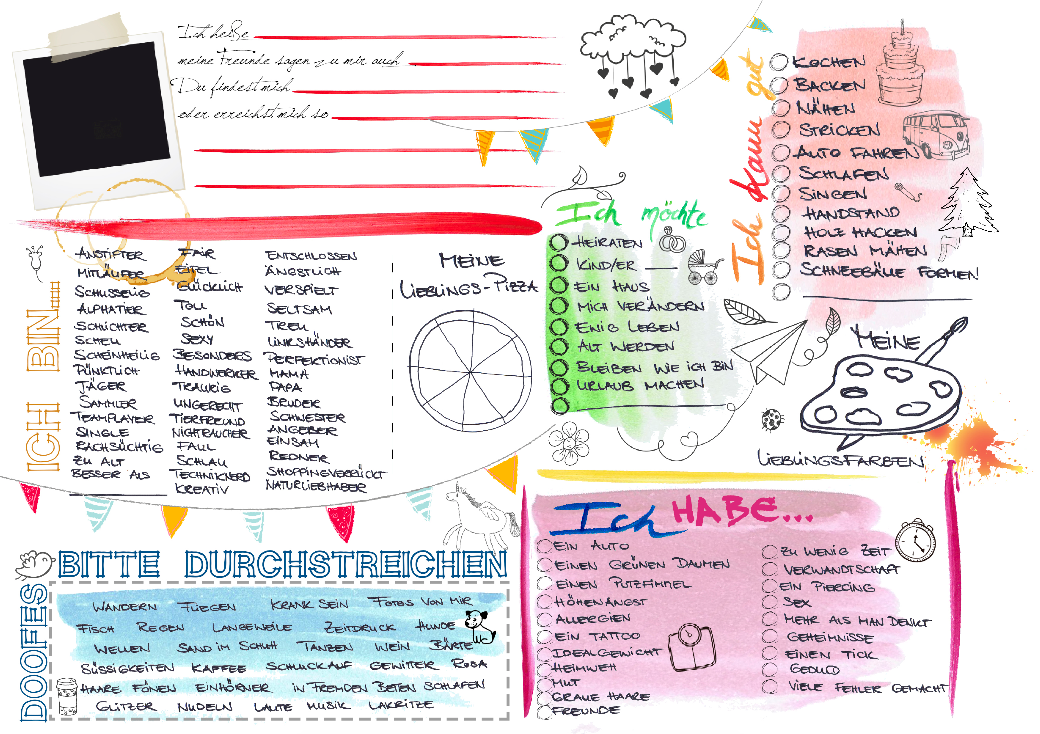 Ich heiße
meine Freunde sagen zu mir auch
Du findest mich
oder erreichst mich so
Ich kann gut
KOCHEN
BACKEN
NÄHEN
STRICKEN
AUTO FAHREN
SCHLAFEN
SINGEN
HANDSTAND
HOLZ HACKEN
RASEN MÄHEN
SCHNEEBÄLLE FORMEN
ICH BIN....
ANSTIFTER
MITLÄUFER
SCHUSSELIG
ALPHATIER
SCHICHTER
SCHEU
SCHEINHEILIG
PÜNKTLICH
JÄGER
SAMMLER
TEAMPLAYER
SINGLE
RACHSÜCHTIG
ZU ALT
BESSER ALS
FAIR
EITEL
GLÜCKLICH
TOLL
SCHÖN
SEXY
BESONDERS
HANDWERKER
TRAURIG
UNGERECHT
TIERFREUND
NICHTRAUCHER
FAUL
SCHLAU
TECHNIKNERD
KREATIV
ENTSCHLOSSEN
ÄNGSTLICH
VERSPIELT
SELTSAM
TREU
LINKSHÄNDER
PERFEKTIONIST
MAMA
PAPA
BRUDER
SCHWESTER
ANGEBER
EINSAM
REDNER
SHOPPINGVERRÜCKT
NATURLIEBHABER
MEINE
LIEBLINGS-PIZZA
Ich möchte
HEIRATEN
KIND/ER
EIN HAUS
MICH VERÄNDERN
EWIG LEBEN
ALT WERDEN
BLEIBEN WIE ICH BIN
URLAUB MACHEN
MEINE
LIEBLINGSFARBEN
BITTE DURCHSTREICHEN
DOOFES
WANDERN FLIEGEN KRANK SEIN FOTOS VON MIR
FISCH REGEN LANGEWEILE ZEITDRUCK HUNDE
WELLEN SAND IM SCHUH TANZEN WEIN BÄRTE
SÜSSIGKEITEN KAFFEE SCHLUCKAUF GEWITTER ROSA
HAARE FÖNEN EINHÖRNER IN FREMDEN BETEN SCHLAFEN
GLITZER NUDELN LAUTE MUSIK LAKRITZE
Ich HABE...
EIN AUTO
EINEN GRÜNEN DAUMEN
EINEN PUTZFIMMEL
HÖHENANGST
ALLERGIEN
EIN TATTOO
IDEALGEWICHT
HEIMWEH
MUT
GRAUE HAARE
FREUNDE
ZU WENIG ZEIT
VERWANDTSCHAFT
EIN PIERCING
SEX
MEHR ALS MAN DENKT
GEHEIMNISSE
EINEN TICK
GEDULD
VIELE FEHLER GEMACHT